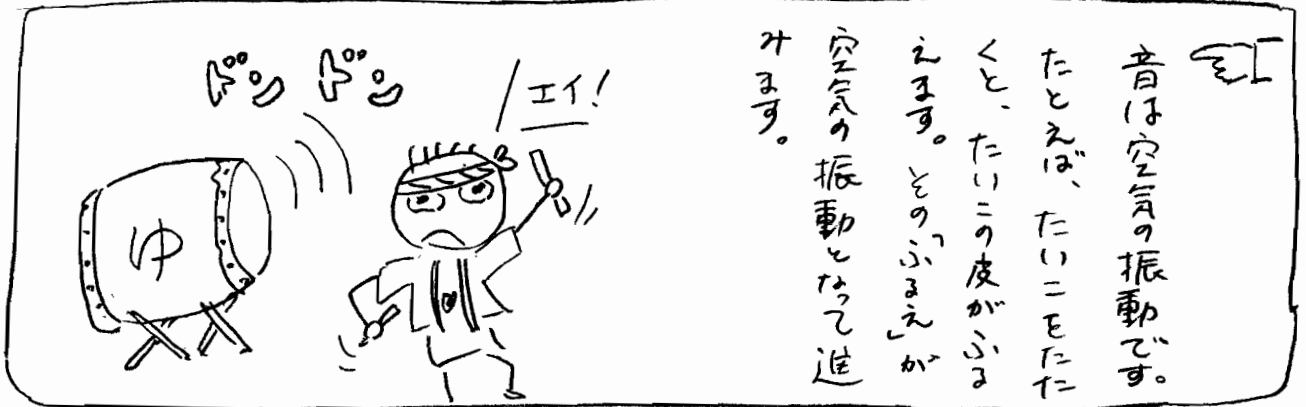 音は空気の振動です。
たとえば、たいこをたた
くと、たいこの皮がふる
えます。その「ふるえ」が
空気の振動となって進
みます。
エイ！
ドン ドン
ゆ